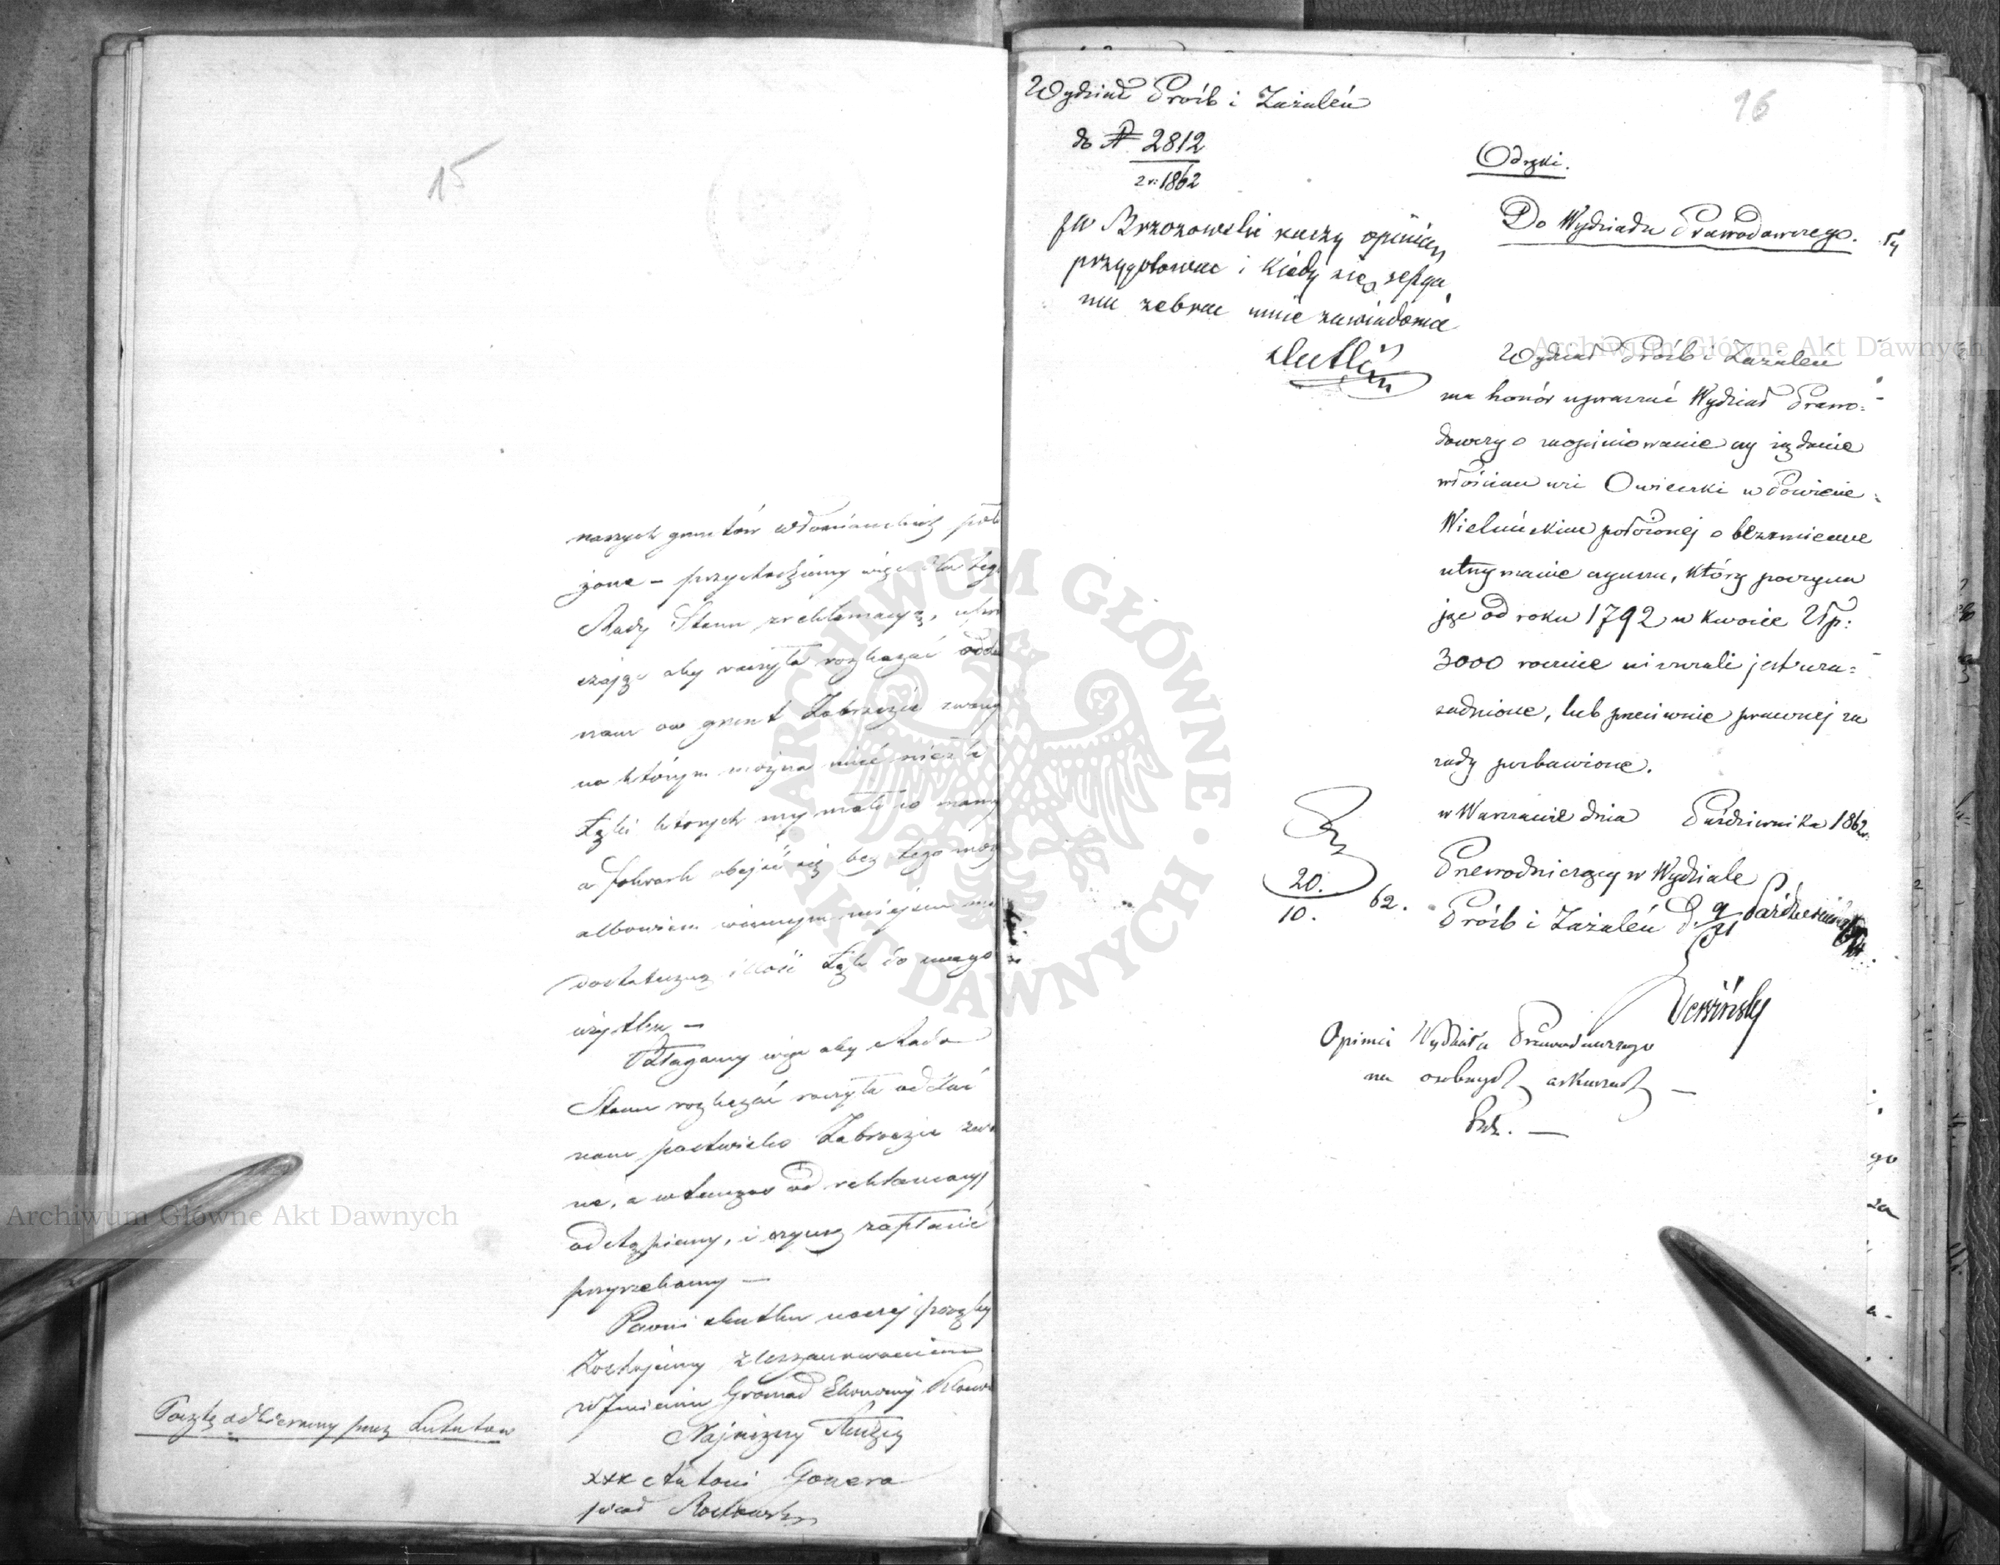 15
naszych gruntów włościańskich poło
żone – przychodzimy więc dla tego
Rady Stanu z reklamacyą, upra
szając aby raczyła rozkazać oddać
nam ow grunt Zabrzezie zwany
na którym można mieć nieźle
Łąki których my mało co mamy
a folwark obejść się bez tego może
albowiem w innym miejscu ma
dostateczną ilość Łąk do swego
użytku –
Błagamy więc aby Rada
Stanu rozkazać raczyła oddać
nam pastwisko Zabrzezie zwa
ne, a wtenczas od reklamacyj
odstąpiemy, i czynsz zapłacić
przyrzekamy –
Pewni skutku naszej prozby
Zostajemy z uszanowaniem
w Imieniu Gromad
Najniżsi Słudzy
xxx Antoni Gonera
pisał
Pocztę odbieramy przez Lututow
16
Wydział Próśb i Zażaleń
do N 2812
z r: 1862
JW Brzozowski raczy opinią
przygotować i kiedy się
zebrać mnie zawiadomić
Odezki.
Do Wydziału Prawodawczego.
Wydział Próśb i Zażaleń
ma honór upraszać Wydział Prawo=
dawczy o zaopiniowanie czy żądanie
włościan wsi Owieczki w Powiecie
Wieluńskim położonej o bezzmienne
utrzymanie czynszu, który poczyna
jąc od roku 1792 w kwocie Złp:
3000 rocznie uiszczali jest uza=
sadnione, lub przeciwnie prawnej za
sady pozbawione.
w Warszawie dnia Października 1862 r.
Przewodniczący w Wydziale
Próśb i Zażaleń d. 9/21 Października
20.
10. 62.
Opinia Wydziału Prawodawczego
na osobnych arkuszach –
Archiwum Główne Akt Dawnych
Archiwum Główne Akt Dawnych
ARCHIWUM GŁÓWNE · AKT DAWNYCH ·